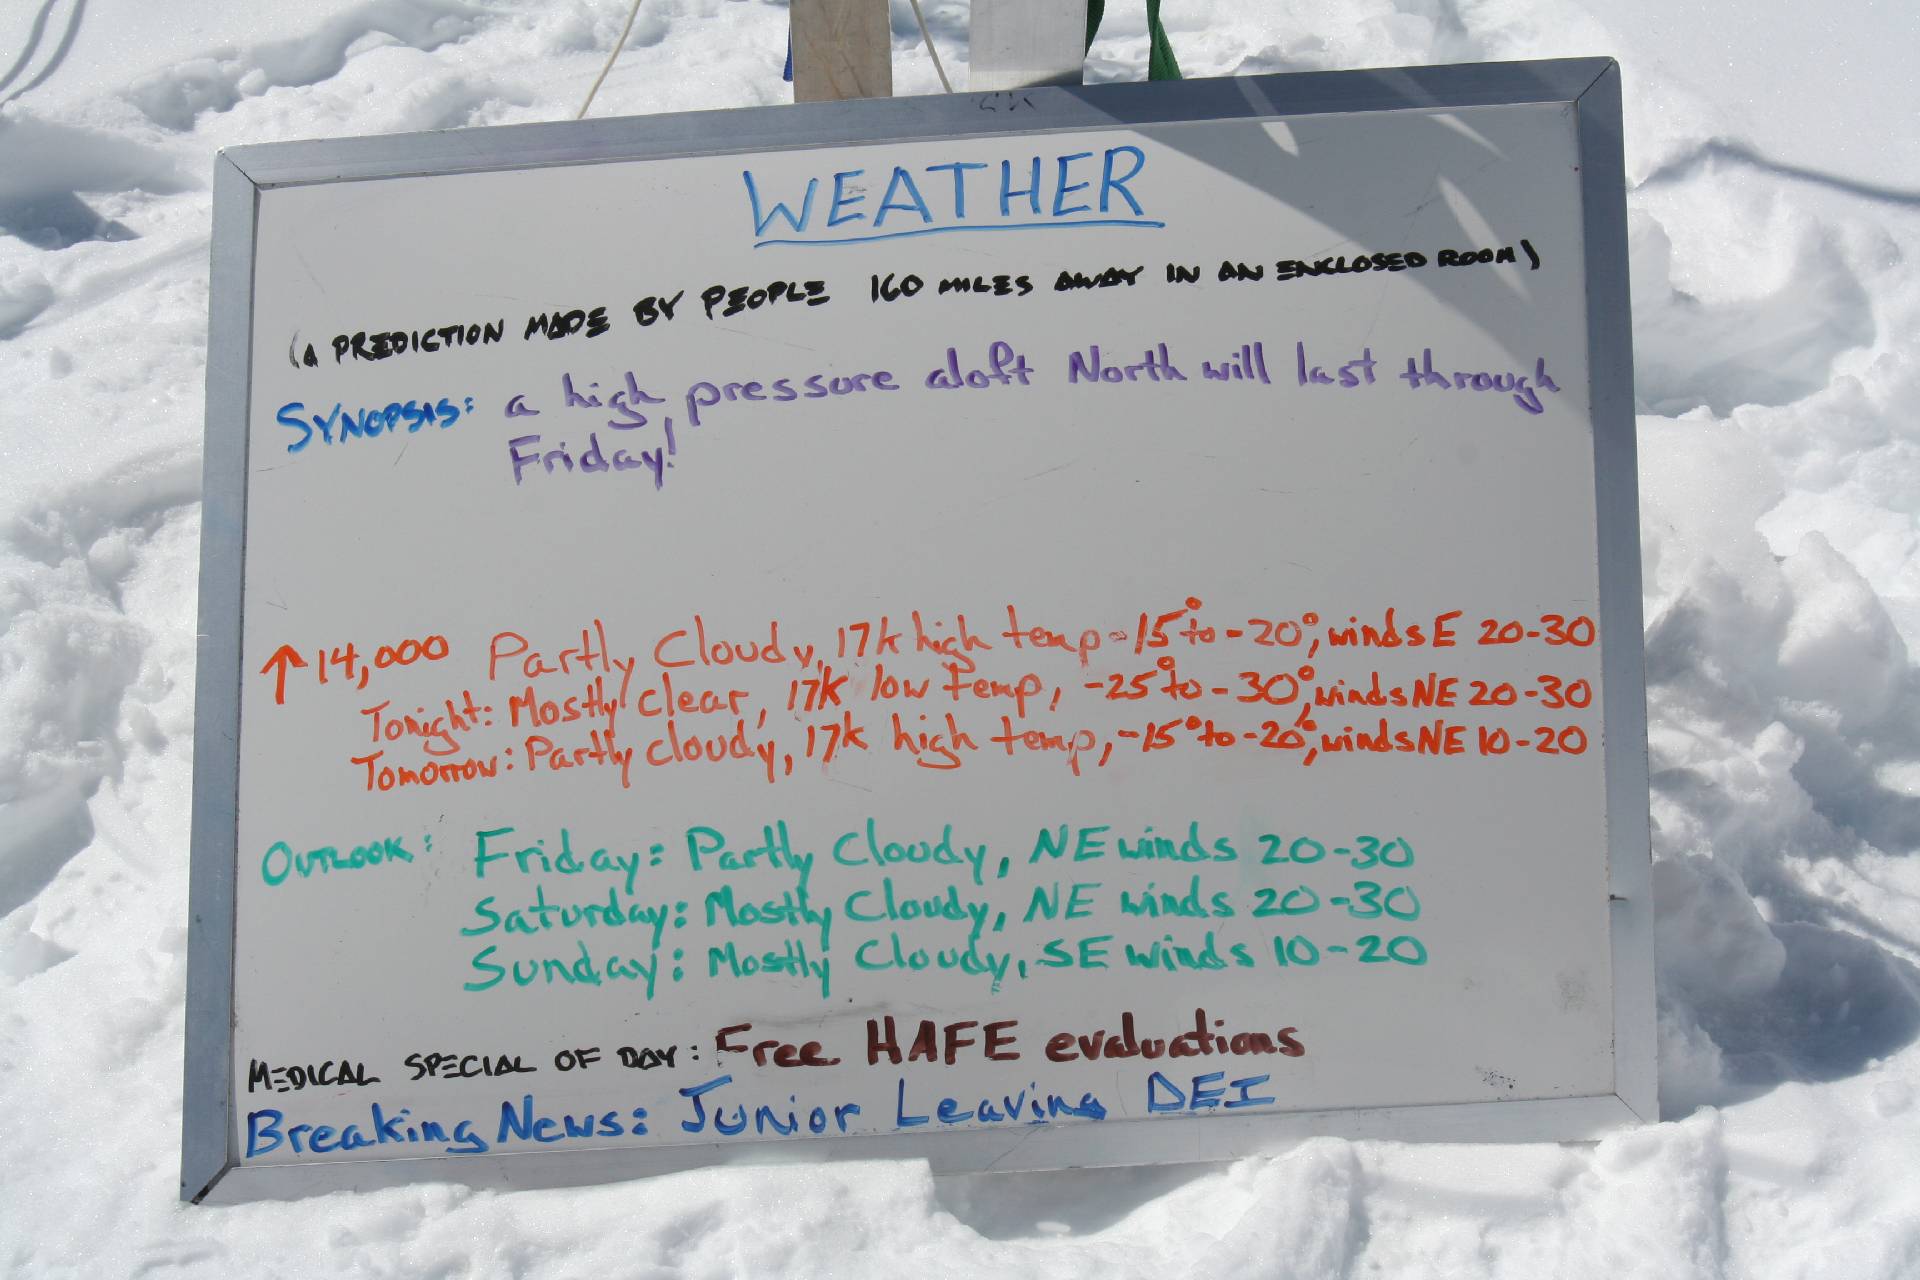 WEATHER
(A PREDICTION MADE BY PEOPLE 160 MILES AWAY IN AN ENCLOSED ROOM)
SYNOPSIS: a high pressure aloft North will last through
Friday!
↑14,000 Partly Cloudy, 17k high temp -15° to -20°, winds E 20-30
Tonight: Mostly clear, 17K low temp, -25° to -30°, winds NE 20-30
Tomorrow: Partly cloudy, 17k high temp, -15° to -20°, winds NE 10-20
OUTLOOK: Friday: Partly Cloudy, NE winds 20-30
Saturday: Mostly Cloudy, NE winds 20-30
Sunday: Mostly Cloudy, SE winds 10-20
MEDICAL SPECIAL OF DAY: Free HAFE evaluations
Breaking News: Junior Leaving DEI